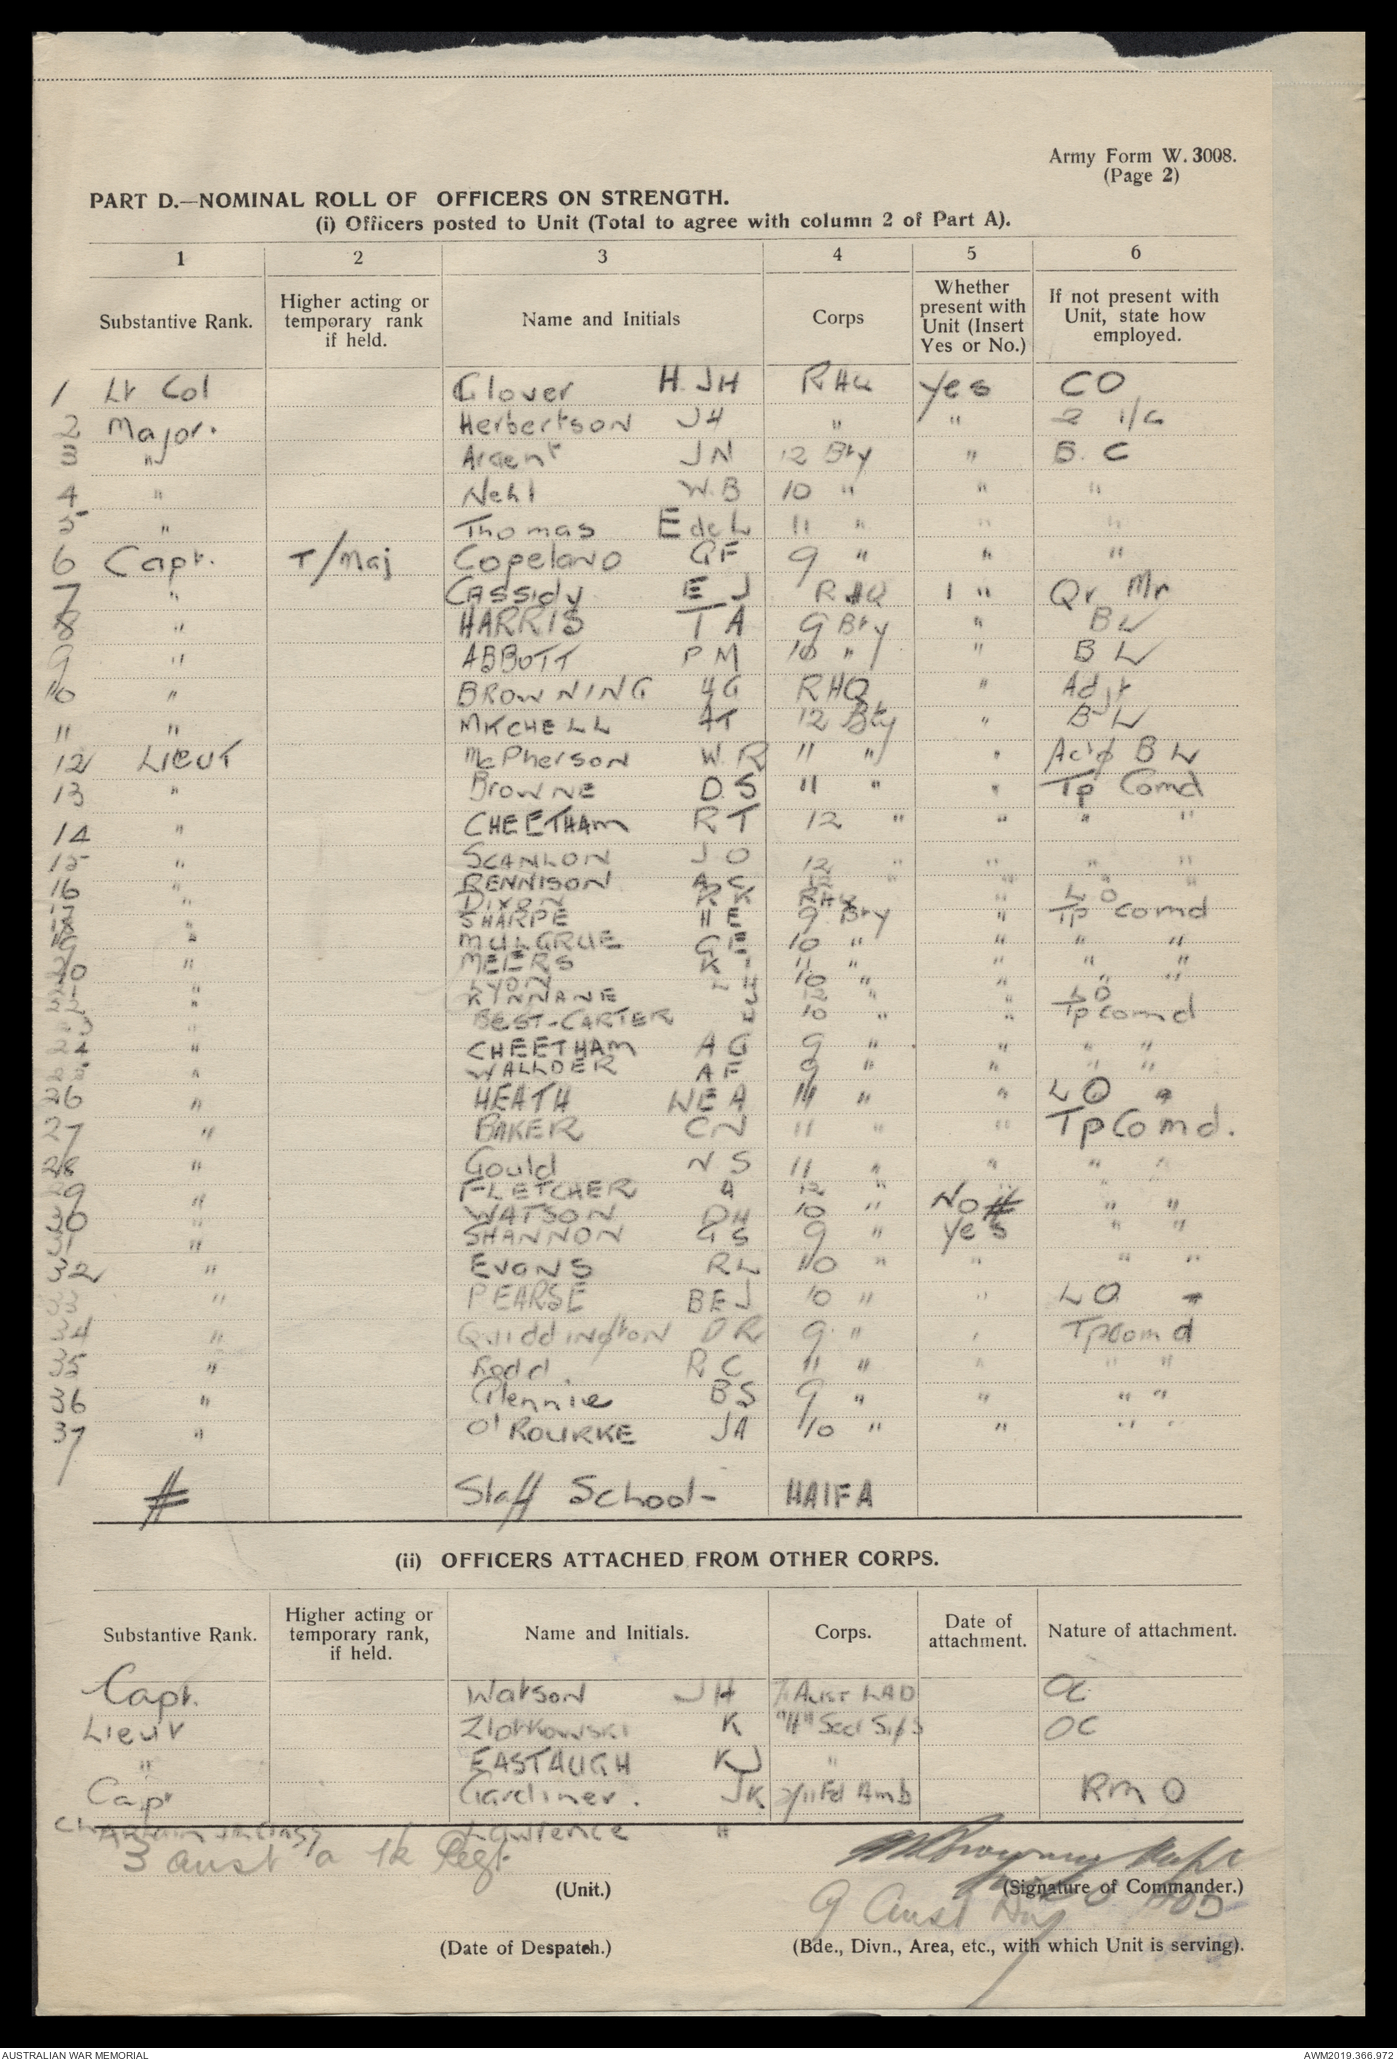 Army Form W. 3008.
(Page 2)
PART D.—NOMINAL ROLL OF OFFICERS ON STRENGTH.
(i) Officers posted to Unit (Total to agree with column 2 of Part A).
1 2 3 4 5 6
Substantive Rank. Higher acting or temporary rank if held. Name and Initials Corps Whether present with Unit (Insert Yes or No.) If not present with Unit, state how employed.
1 Lt Col Glover H. JH RHQ Yes CO
2 Major. Herbertson JH " " 2 i/c
3 " Argent JN 12 Bty " B. C
4 " Nehl W.B 10 " " "
5 " Thomas E de L 11 " " "
6 Capt. T/Maj Copeland GF 9 " " "
7 " Cassidy E J RHQ 1 " Qr Mr
8 " HARRIS T A 9 Bty " BL
9 " ABBOTT P M 10 " " B L
10 " BROWNING HG RHQ " Adjt
11 " MITCHELL AT 12 Bty " BL
12 Lieut McPherson W. R 11 " " B L
13 " Browne D.S 11 " " Tp Comd
14 " CHEETHAM R T 12 " " " "
15 " SCANLON J O 12 " " " "
16 " RENNISON A C 12 " " " "
17 " DIXON R K RHQ LO
18 " SHARPE H E 9 Bty " Tp comd
19 " MULGRUE G E 10 " " " "
20 " MEIERS K 11 " " " "
21 " LYON L H 10 " " " "
22 " KINNANE J 12 " " LO
23 BEST-CARTER 10 " " Tp comd
24 " CHEETHAM A G 9 " " " "
25 " WALLDER A F 9 " " " "
26 " HEATH WE A 11 " " L O "
27 " BAKER CN 11 " " Tp Comd.
28 " Gould N S 11 " " " "
29 " FLETCHER A 12 " " " "
30 " WATSON DH 10 " No # " "
31 " SHANNON GS 9 " Yes " "
32 " Evans RL 10 " " " "
33 " PEARSE BEJ 10 " " L O "
34 " Quiddington D R 9 " " Tp comd
35 " Rodd. R C 11 " " " "
36 " Glennie BS 9 " " " "
37 " O'ROURKE JA 10 " " " "
# Staff School - HAIFA
(ii) OFFICERS ATTACHED FROM OTHER CORPS.
Substantive Rank. Higher acting or temporary rank, if held. Name and Initials. Corps. Date of attachment. Nature of attachment.
Capt. Watson JH Aust LAD OC
Lieut Zlotkowski K "H" Sect Sigs OC
" EASTAUGH KJ "
Capt Gardiner. JK 2/11 Fd Amb RMO
Lawrence "
3 Aust a Tk Regt.
(Unit.)
(Signature of Commander.)
9 Aust Div
(Date of Despatch.) (Bde., Divn., Area, etc., with which Unit is serving).
AUSTRALIAN WAR MEMORIAL AWM2019.366.972